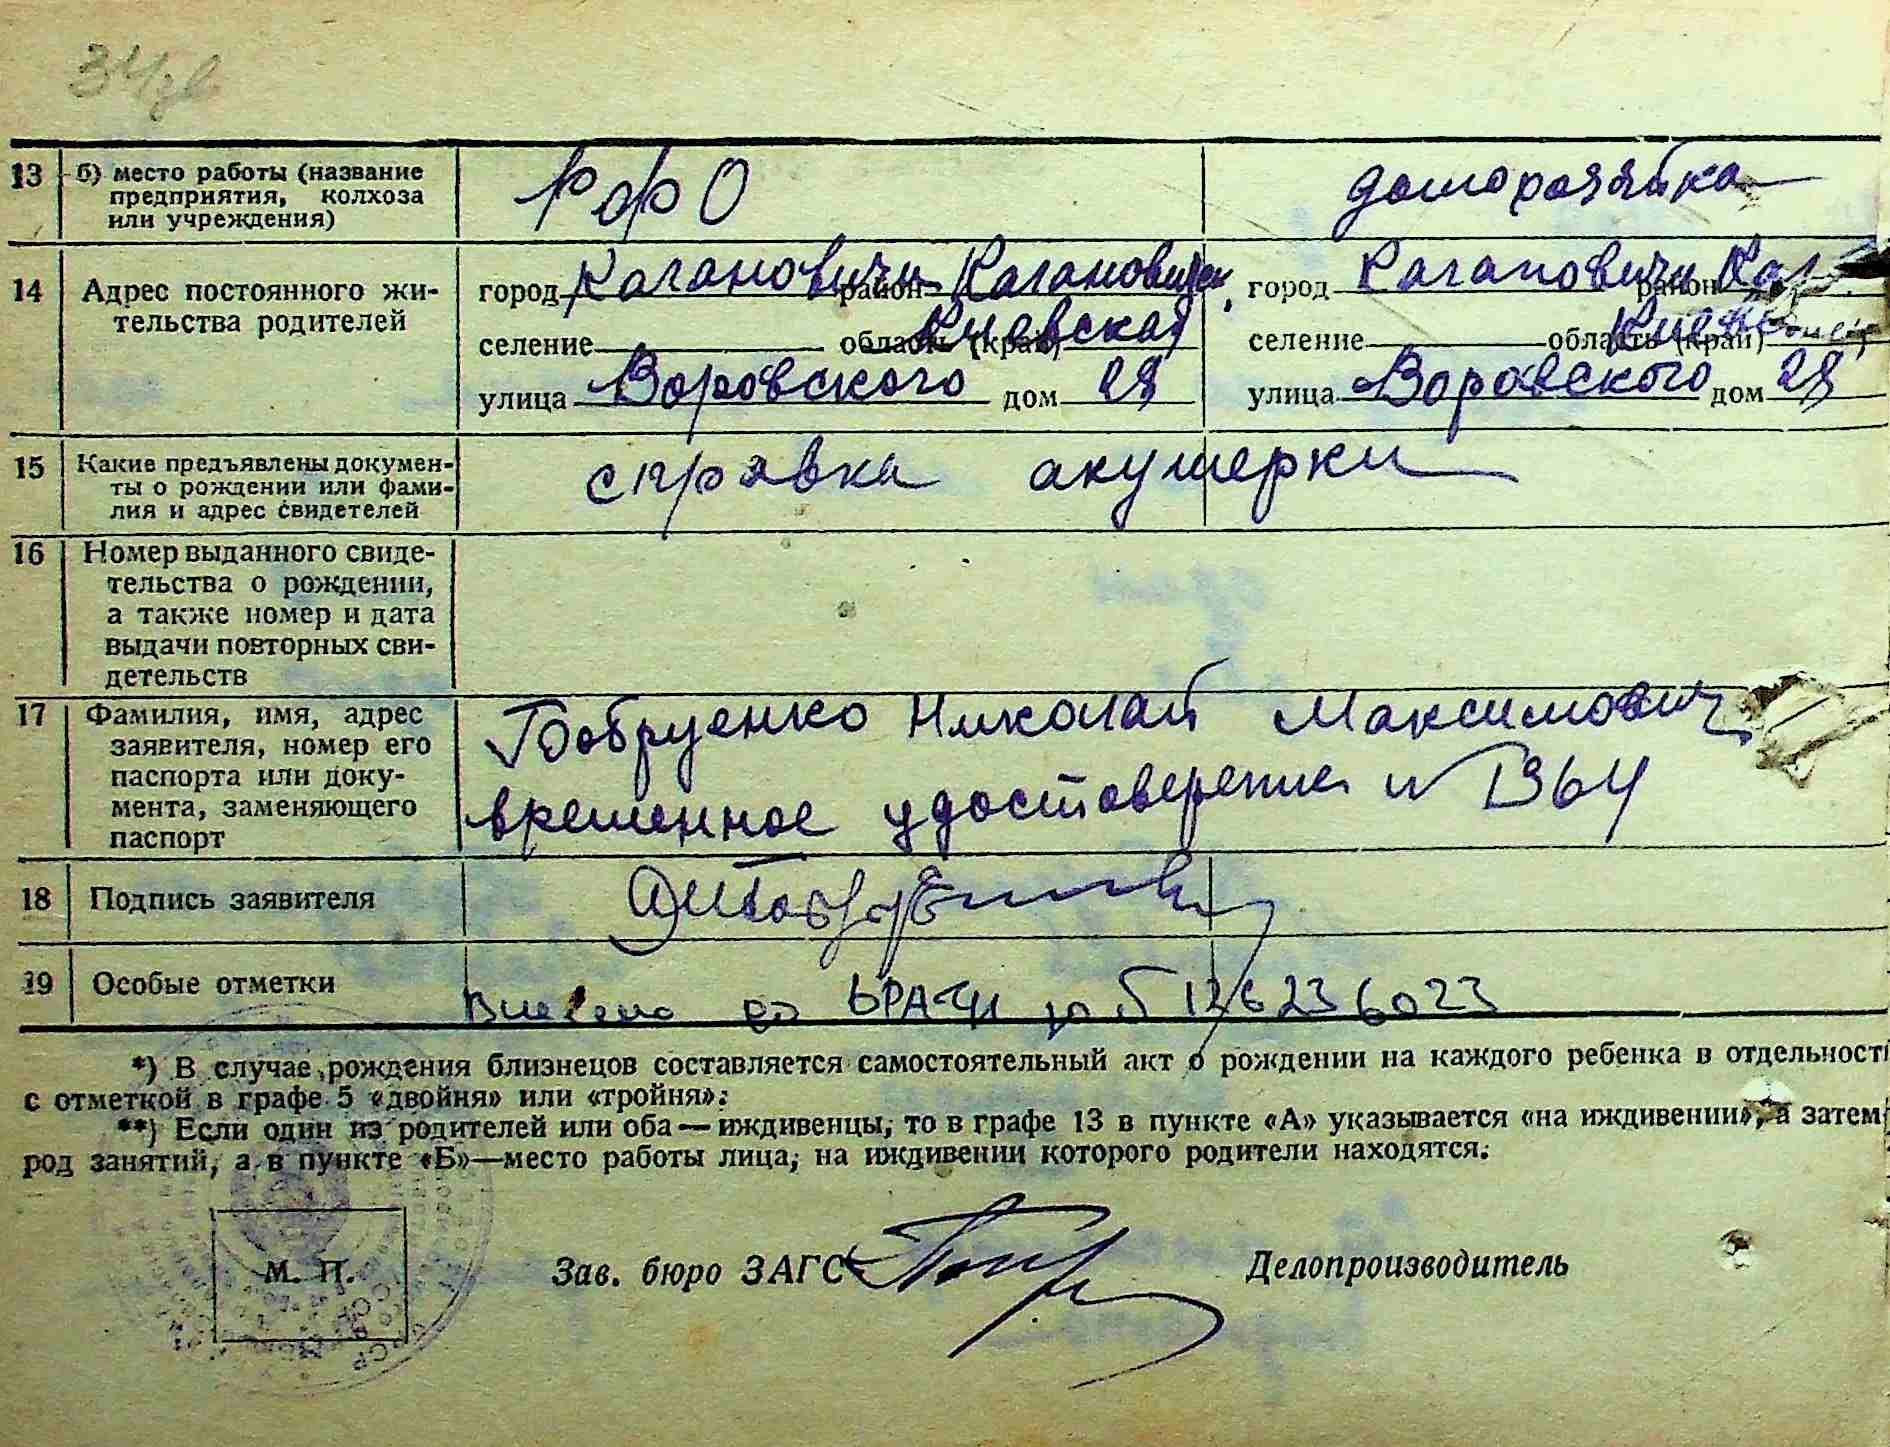 13 б) место работы (название
предприятия, колхоза
или учреждения)
РФО
домохозяйка
14 Адрес постоянного жи-
тельства родителей
город Кагановичи район Кагановичск.
селение область (край) Киевская
улица Воровского дом 28
город Кагановичи район Каг
селение область (край) Киевс
улица Воровского дом 28
15 Какие предъявлены докумен-
ты о рождении или фами-
лия и адрес свидетелей
справка акушерки
16 Номер выданного свиде-
тельства о рождении,
а также номер и дата
выдачи повторных сви-
детельств
17 Фамилия, имя, адрес
заявителя, номер его
паспорта или доку-
мента, заменяющего
паспорт
Бобруенко Николай Максимович
временное удостоверение № 1364
18 Подпись заявителя
19 Особые отметки
Внесено до ДРАЦС за 126236023
*) В случае рождения близнецов составляется самостоятельный акт о рождении на каждого ребенка в отдельност
с отметкой в графе 5 «двойня» или «тройня».
**) Если один из родителей или оба — иждивенцы, то в графе 13 в пункте «А» указывается «на иждивении», а затем
род занятий, а в пункте «Б»—место работы лица, на иждивении которого родители находятся.
М. П.
Зав. бюро ЗАГС
Делопроизводитель